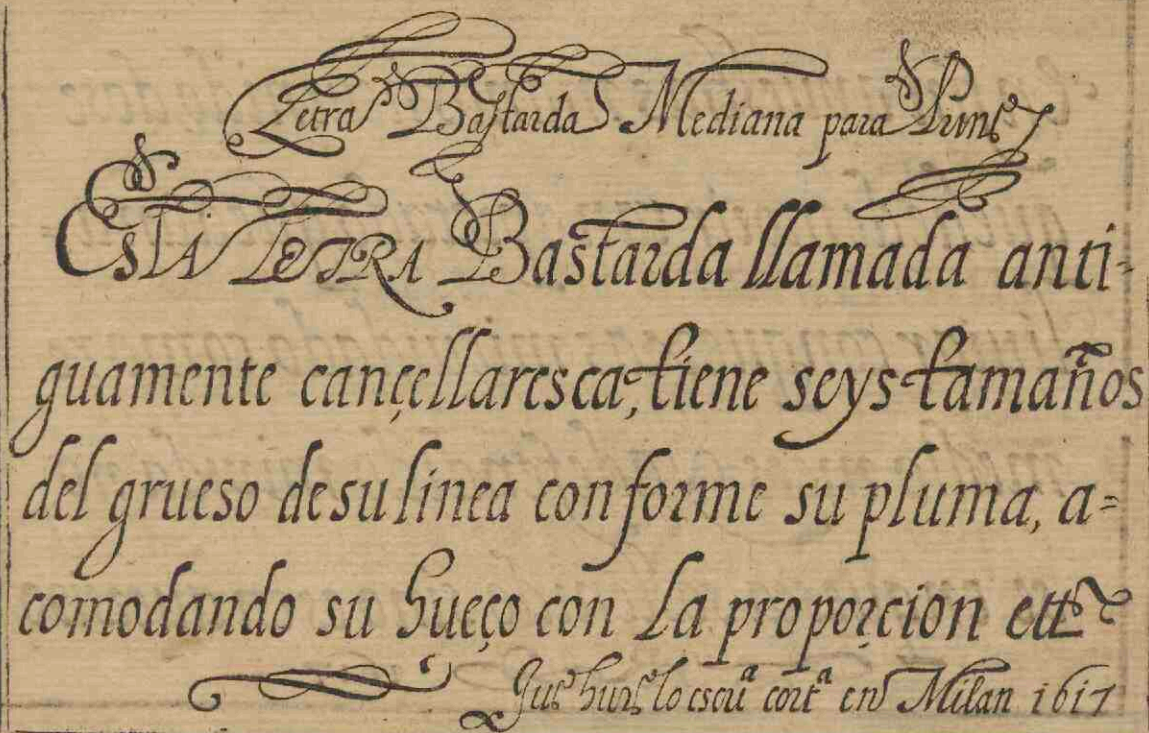 Letra Bastarda Mediana para
ESTA LETRA Bastarda llamada anti-
guamente cançellaresca, tiene seys tamaños
del grueso de su linea conforme su pluma, a=
comodando su hueço con La proporçion ett
lo escuᵃ cortᵃ en Milan 1617